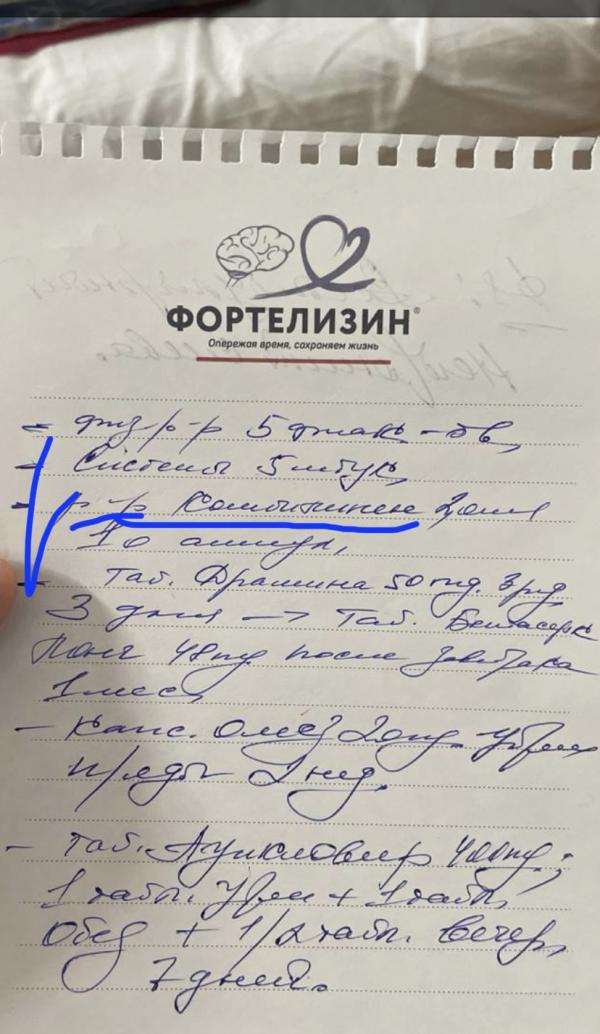 ФОРТЕЛИЗИН®
Опережая время, сохраняем жизнь
- физ р-р 5 флак-ов,
- Системы 5 штук,
- р-р Комбилипен 2,0 мл
10 ампул,
- Таб. Драмина 50 мг. 3 р/д,
3 дня → Таб. Бетасерк
Лонг 48 мг после завтрака
1 мес,
- Капс. Омез 20 мг. утром
п/еды 2 нед.
- Таб. Ацикловир 400 мг;
1 табл. утром + 1 табл.
обед + 1/2 табл. вечер,
7 дней.